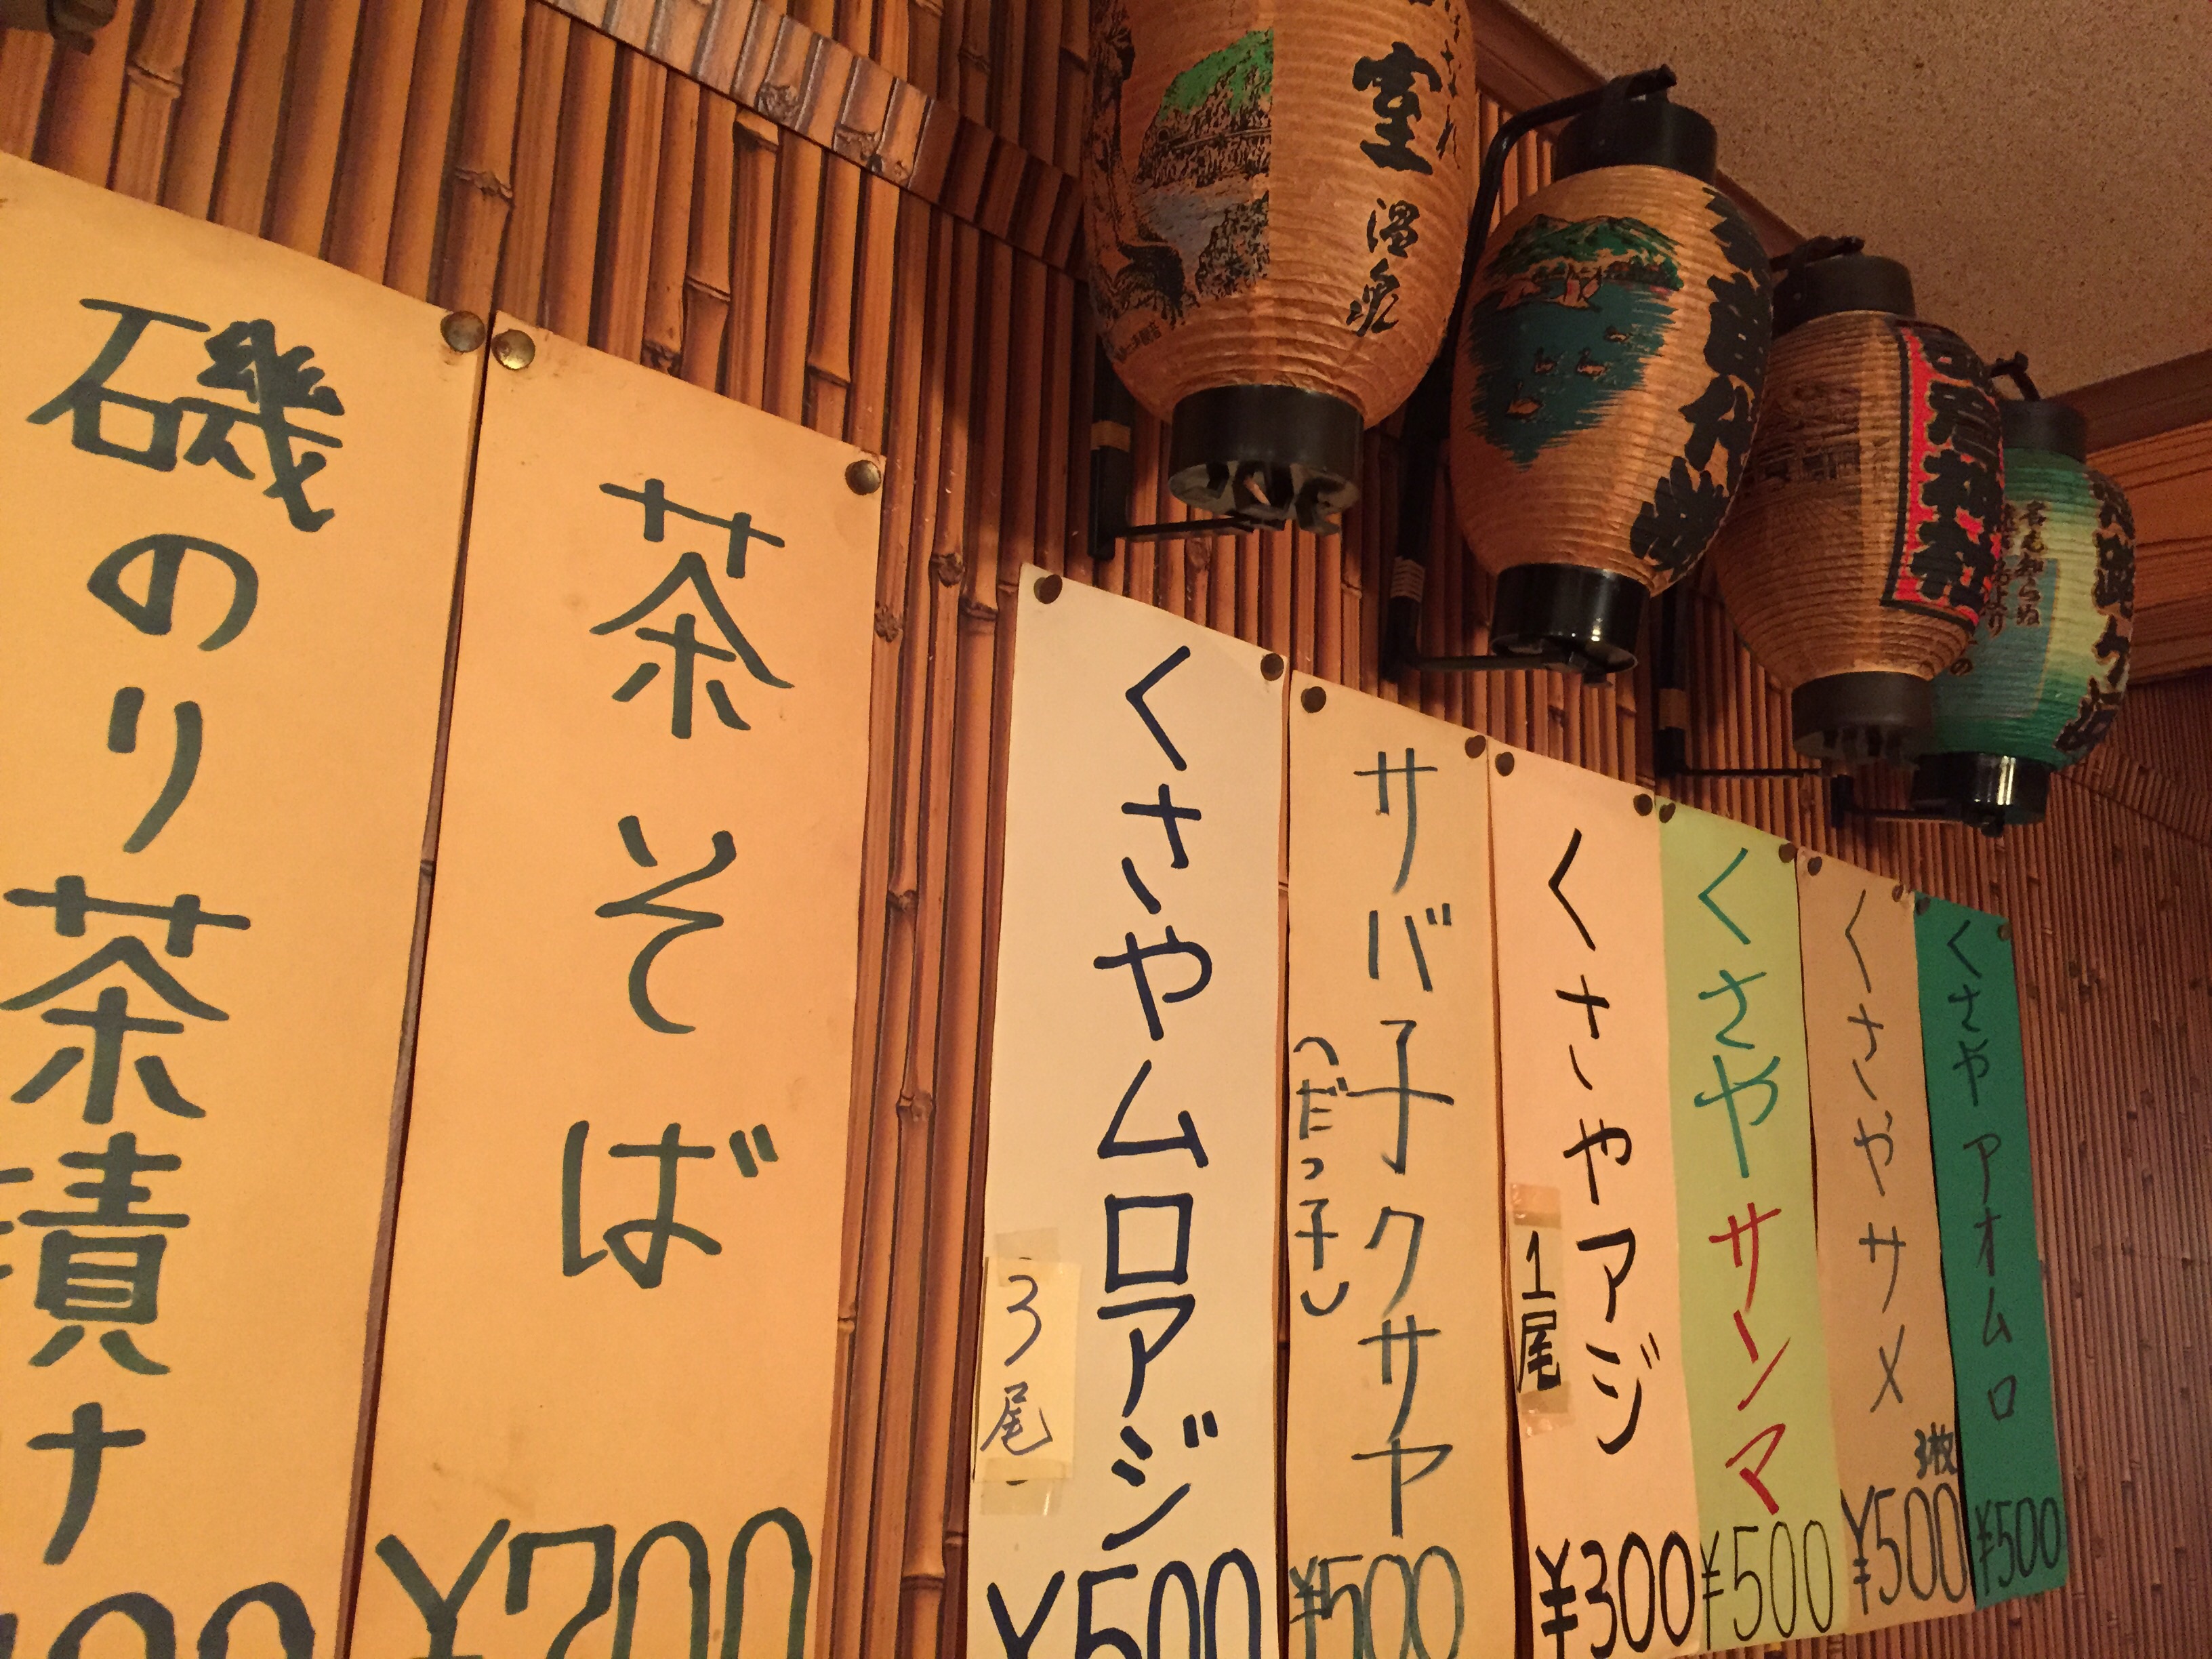 磯のり茶漬ナ
茶そば
¥700
くさやムロアジ
3尾
¥500
サバ子クサヤ
(だっ子)
¥500
くさやアジ
1尾
¥300
くさやサンマ
¥500
くさやサメ
3枚
¥500
くさやアオムロ
¥500
室
温泉